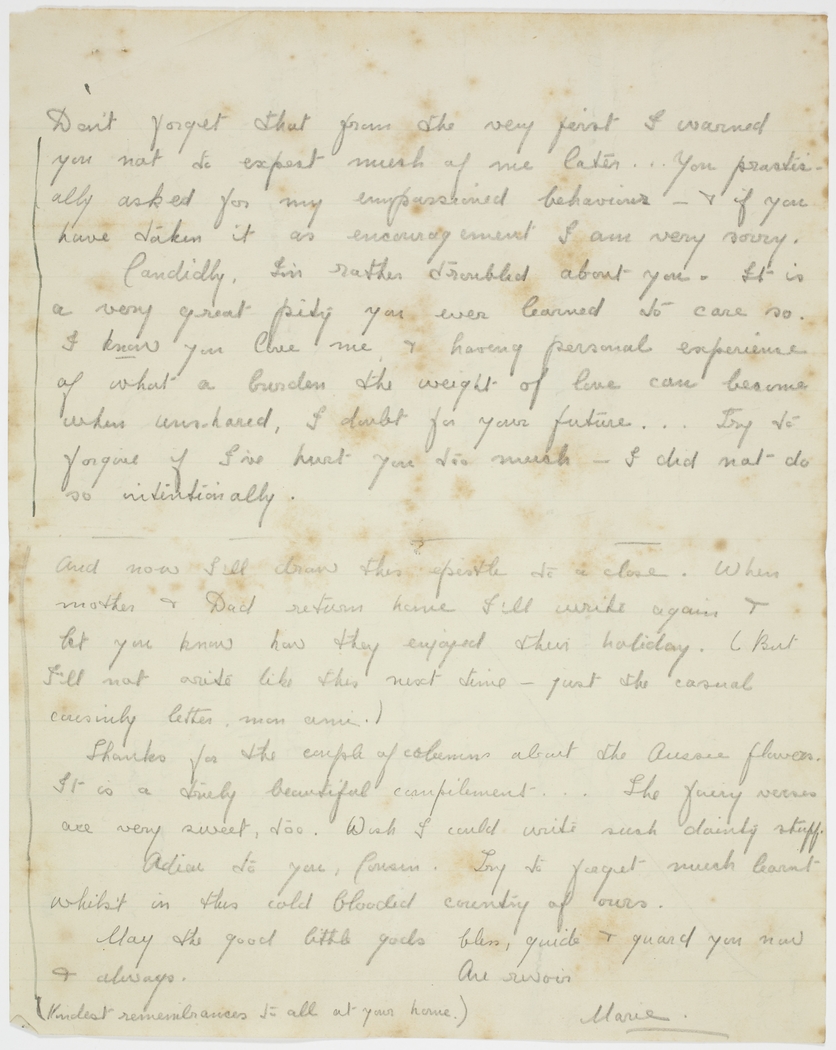 Don't forget that from the very first I warned
you not to expect much of me later... You practic-
ally asked for my empassioned behaviour – & if you
have taken it as encouragement I am very sorry.
Candidly, I'm rather troubled about you. It is
a very great pity you ever learned to care so.
I know you love me, & having personal experience
of what a burden the weight of love can become
when unshared, I doubt for your future... Try to
forgive if I've hurt you too much – I did not do
so intentionally.
And now I'll draw this epistle to a close. When
mother & Dad return home I'll write again &
let you know how they enjoyed their holiday. (But
I'll not write like this next time – just the casual
cousinly letter, mon ami.)
Thanks for the couple of columns about the Aussie flowers.
It is a truly beautiful compliment... The fairy verses
are very sweet, too. Wish I could write such dainty stuff.
Adieu to you, Cousin. Try to forget much learnt
whilst in this cold blooded country of ours.
May the good little gods bless, guide & guard you now
& always. Au revoir
(Kindest remembrances to all at your home.) Marie.